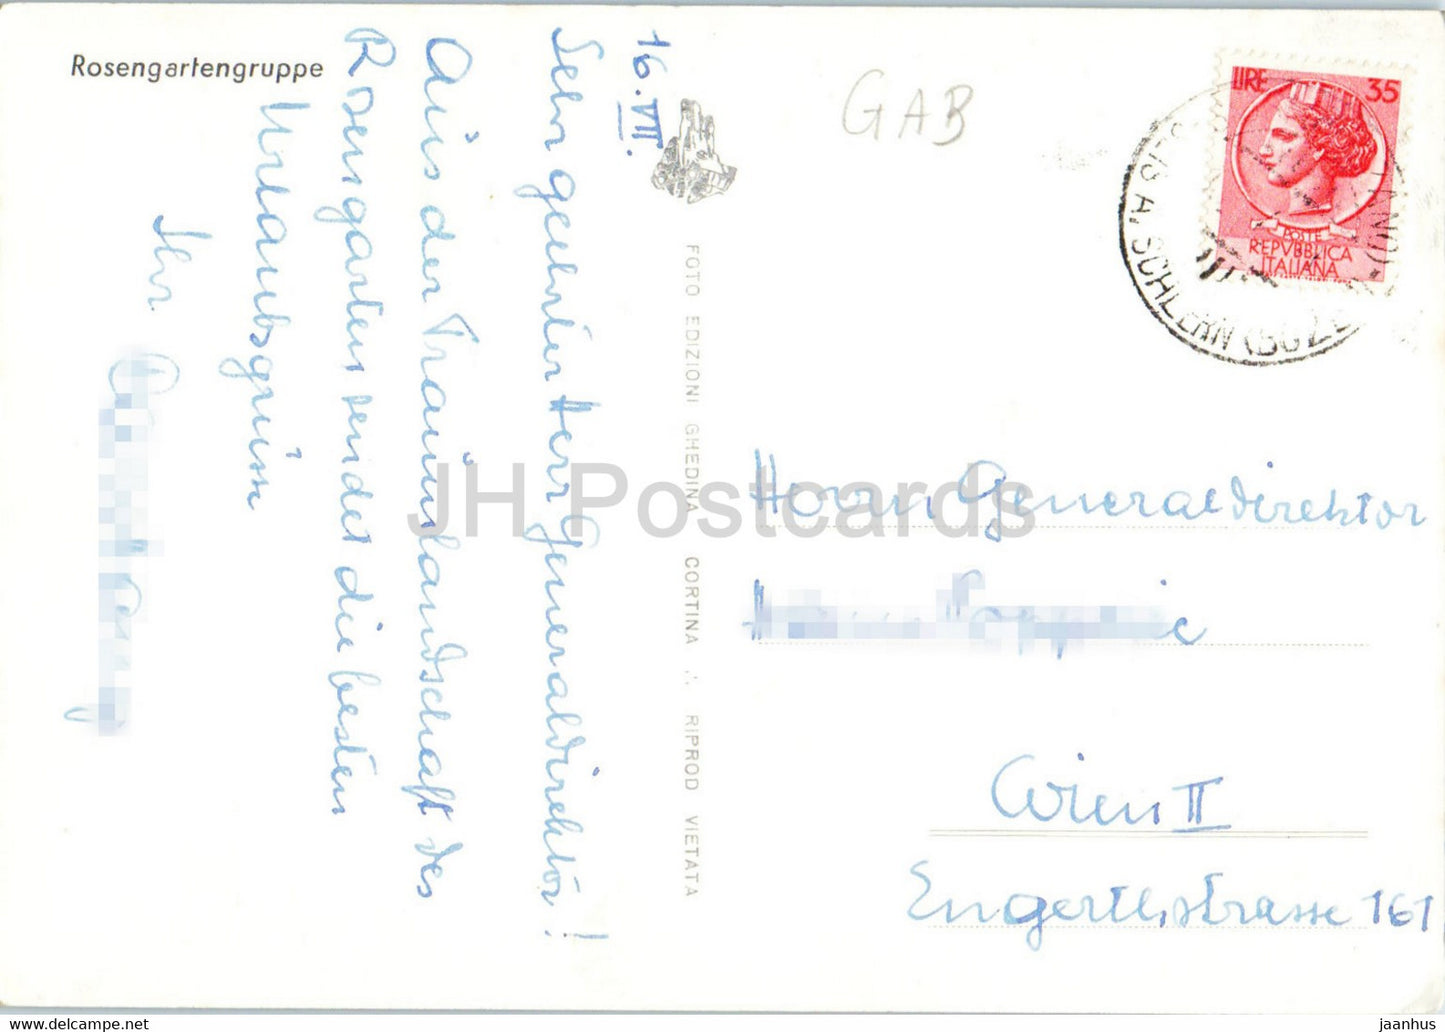 Rosengartengruppe
16. VII.
Sehr geehrter Herr Generaldirektor!
Aus der Traumlandschaft des
Rosengartens sendet die besten
Urlaubsgrüsse
Ihr
FOTO EDIZIONI GHEDINA CORTINA ∴ RIPROD VIETATA
GAB
LIRE 35
POSTE
REPVBBLICA
ITALIANA
A. SCHLERN
Herrn Generaldirektor
Wien II
Engerthstrasse 161
JH Postcards
jaanhus